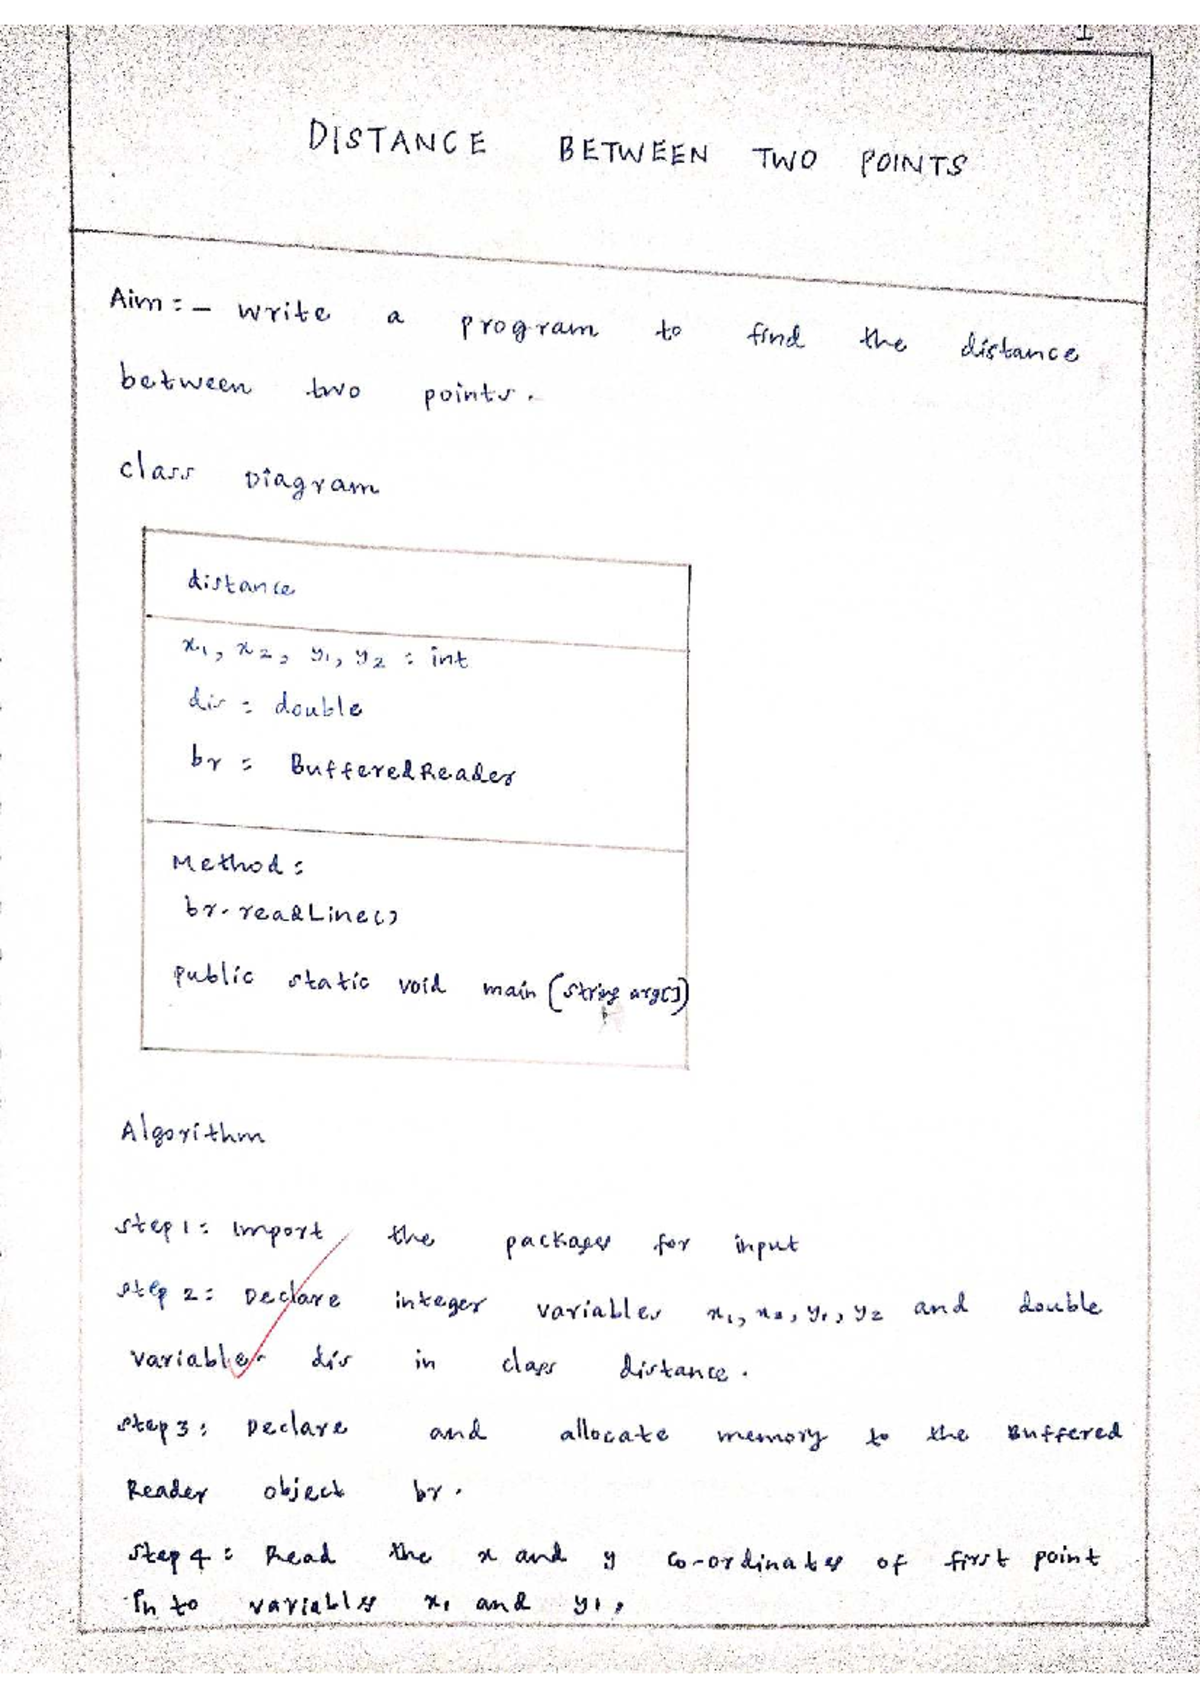 1
DISTANCE BETWEEN TWO POINTS
Aim:- write a program to find the distance
between two points.
class Diagram
distance
x1, x2, y1, y2 : int
dis : double
br : BufferedReader
Method:
br.readLine()
public static void main (string arg[])
Algorithm
step1: Import the packages for input
step 2: Declare integer variables x1, x2, y1, y2 and double
variables dis in class distance.
step3: Declare and allocate memory to the Buffered
Reader object br.
step 4: Read the x and y co-ordinates of first point
in to variables x1 and y1,